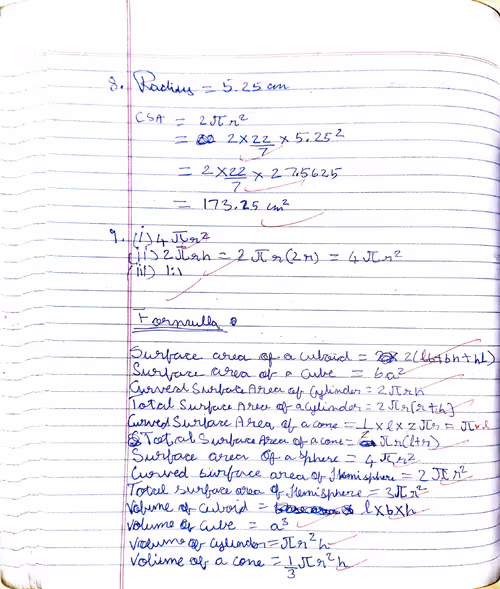 8. Radius = 5.25 cm
CSA = 2πr²
= 2 × 22/7 × 5.25²
= 2 × 22/7 × 27.5625
= 173.25 cm²
9. (i) 4πr²
(ii) 2πrh = 2πr(2r) = 4πr²
(iii) 1:1
Formula
Surface area of a cuboid = 2(lb+bh+hl)
Surface area of a cube = 6a²
Curved Surface Area of Cylinder = 2πrh
Total Surface Area of a Cylinder = 2πr[r+h]
Curved Surface Area of a cone = 1/2 × l × 2πr = πrl
Total Surface Area of a cone = πr(l+r)
Surface area of a Sphere = 4πr²
Curved surface area of Hemisphere = 2πr²
Total surface area of Hemisphere = 3πr²
Volume of Cuboid = l×b×h
Volume of Cube = a³
Volume of Cylinder = πr²h
Volume of a cone = 1/3 πr²h